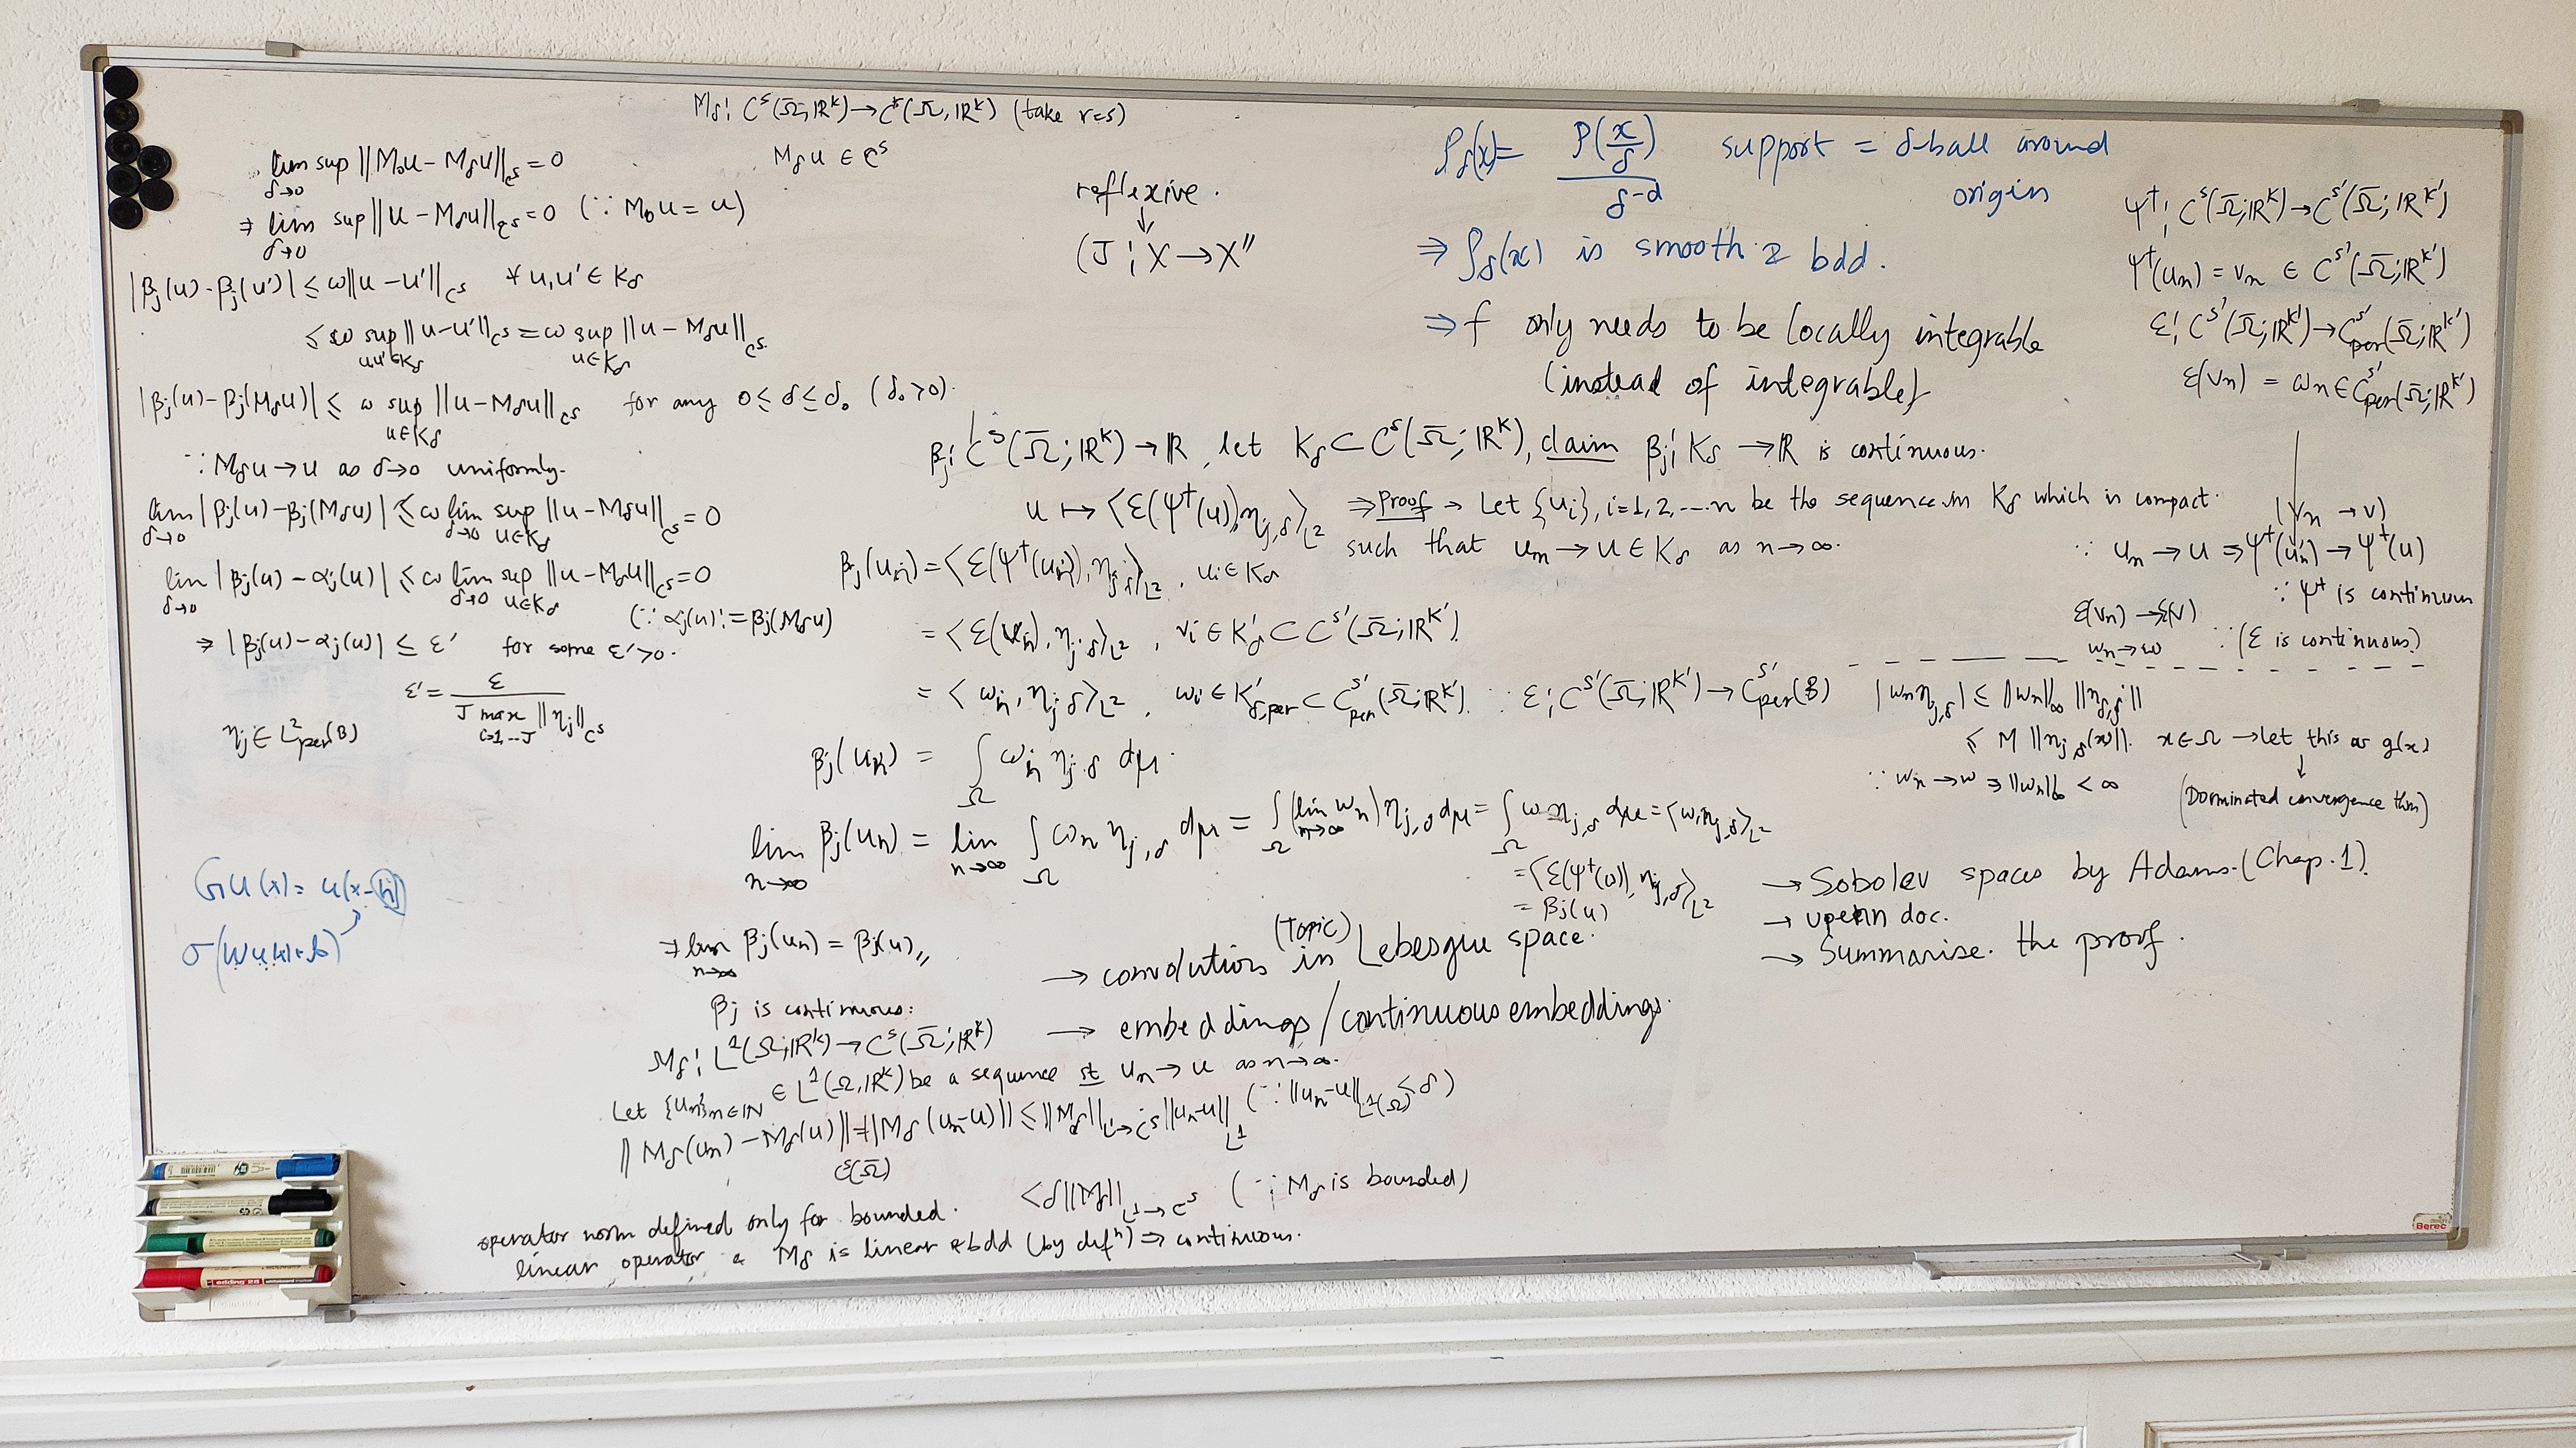 M_δ : C^s(Ω̄; ℝ^k) → C^s(Ω̄, ℝ^k) (take r=s)
M_δ u ∈ C^s
lim sup_{δ→0} ||M_0u − M_δu||_{C^s} = 0
⇒ lim_{δ→0} sup ||u − M_δu||_{C^s} = 0 (∵ M_0 u = u)
|β_j(u) − β_j(u')| ≤ ω||u − u'||_{C^s} ∀ u,u' ∈ K_δ
≤ ω sup_{u,u'∈K_δ} ||u − u'||_{C^s} = ω sup_{u∈K_δ} ||u − M_δu||_{C^s}
|β_j(u) − β_j(M_δu)| ≤ ω sup_{u∈K_δ} ||u − M_δu||_{C^s} for any 0 ≤ δ ≤ δ_0 (δ_0 > 0).
∵ M_δu → u as δ→0 uniformly.
lim_{δ→0} |β_j(u) − β_j(M_δu)| ≤ ω lim_{δ→0} sup_{u∈K_δ} ||u − M_δu||_{C^s} = 0
lim_{δ→0} |β_j(u) − α_j(u)| ≤ ω lim_{δ→0} sup_{u∈K_δ} ||u − M_δu||_{C^s} = 0
(∵ α_j(u) := β_j(M_δu))
⇒ |β_j(u) − α_j(u)| ≤ ε' for some ε' > 0.
ε' = ε / (J max_{i=1,..J} ||η_j||_{C^s})
η_j ∈ L²_per(B)
Gu(x) = u(x−h)
σ(Wu(x)+b)
reflexive.
↓
(J : X → X''
ρ_δ(x) = ρ(x/δ) / δ^{-d} support = δ-ball around
origin
⇒ ρ_δ(x) is smooth & bdd.
⇒ f only needs to be locally integrable
(instead of integrable)
Ψ† : C^s(Ω̄; ℝ^k) → C^{s'}(Ω̄; ℝ^{k'})
Ψ†(u_n) = v_n ∈ C^{s'}(Ω̄; ℝ^{k'})
ε : C^{s'}(Ω̄; ℝ^{k'}) → C^{s'}_per(Ω̄; ℝ^{k'})
ε(v_n) = ω_n ∈ C^{s'}_per(Ω̄; ℝ^{k'})
β_j : C^s(Ω̄; ℝ^k) → ℝ, let K_δ ⊂ C^s(Ω̄; ℝ^k), claim β_j : K_δ → ℝ is continuous.
u ↦ ⟨ε(Ψ†(u)), η_{j,δ}⟩_{L²} ⇒ Proof → Let {u_i}, i=1,2,...n be the sequence in K_δ which is compact.
such that u_n → u ∈ K_δ as n→∞.
(v_n → v)
∵ u_n → u ⇒ Ψ†(u_n) → Ψ†(u)
∵ Ψ† is continuous
ε(v_n) → ε(v)
w_n → w ∵ (ε is continuous)
β_j(u_n) = ⟨ε(Ψ†(u_n), η_{j,δ}⟩_{L²}, u_i ∈ K_δ
= ⟨ε(v_n), η_{j,δ}⟩_{L²}, v_i ∈ K'_δ ⊂ C^{s'}(Ω̄; ℝ^{k'})
= ⟨ω_n, η_{j,δ}⟩_{L²}, ω_i ∈ K'_{δ,per} ⊂ C^{s'}_per(Ω̄; ℝ^{k'}). ∵ ε : C^{s'}(Ω̄; ℝ^{k'}) → C^{s'}_per(B)
|w_n η_{j,δ}| ≤ ||w_n||_∞ ||η_{δ,j}||
≤ M ||η_{j,δ}(x)||. x ∈ Ω → let this as g(x)
↓
∵ w_n → w ⇒ ||w_n||_∞ < ∞ (Dominated convergence thm)
β_j(u_n) = ∫_Ω ω_n η_{j,δ} dμ.
lim_{n→∞} β_j(u_n) = lim_{n→∞} ∫_Ω ω_n η_{j,δ} dμ = ∫_Ω (lim_{n→∞} w_n) η_{j,δ} dμ = ∫_Ω ω η_{j,δ} dμ = ⟨w, η_{j,δ}⟩_{L²}
= ⟨ε(Ψ†(u)), η_{j,δ}⟩_{L²}
= β_j(u)
⇒ lim_{n→∞} β_j(u_n) = β_j(u),,
β_j is continuous.
→ Sobolev spaces by Adams. (Chap. 1)
→ upenn doc.
→ Summarise the proof.
(Topic)
→ convolution in Lebesgue space.
→ embeddings / continuous embeddings.
M_δ : L¹(Ω; ℝ^k) → C^s(Ω̄; ℝ^k)
Let {u_n}_{n∈ℕ} ∈ L¹(Ω, ℝ^k) be a sequence st u_n → u as n→∞.
||M_δ(u_n) − M_δ(u)||_{C^s(Ω̄)} = ||M_δ(u_n−u)|| ≤ ||M_δ||_{L¹→C^s} ||u_n−u||_{L¹} (∵ ||u_n−u||_{L¹(Ω)} ≤ δ)
< δ||M_δ||_{L¹→C^s} (∵ M_δ is bounded)
operator norm defined only for bounded.
linear operator & M_δ is linear & bdd (by defⁿ) ⇒ continuous.
edding 28
Berec